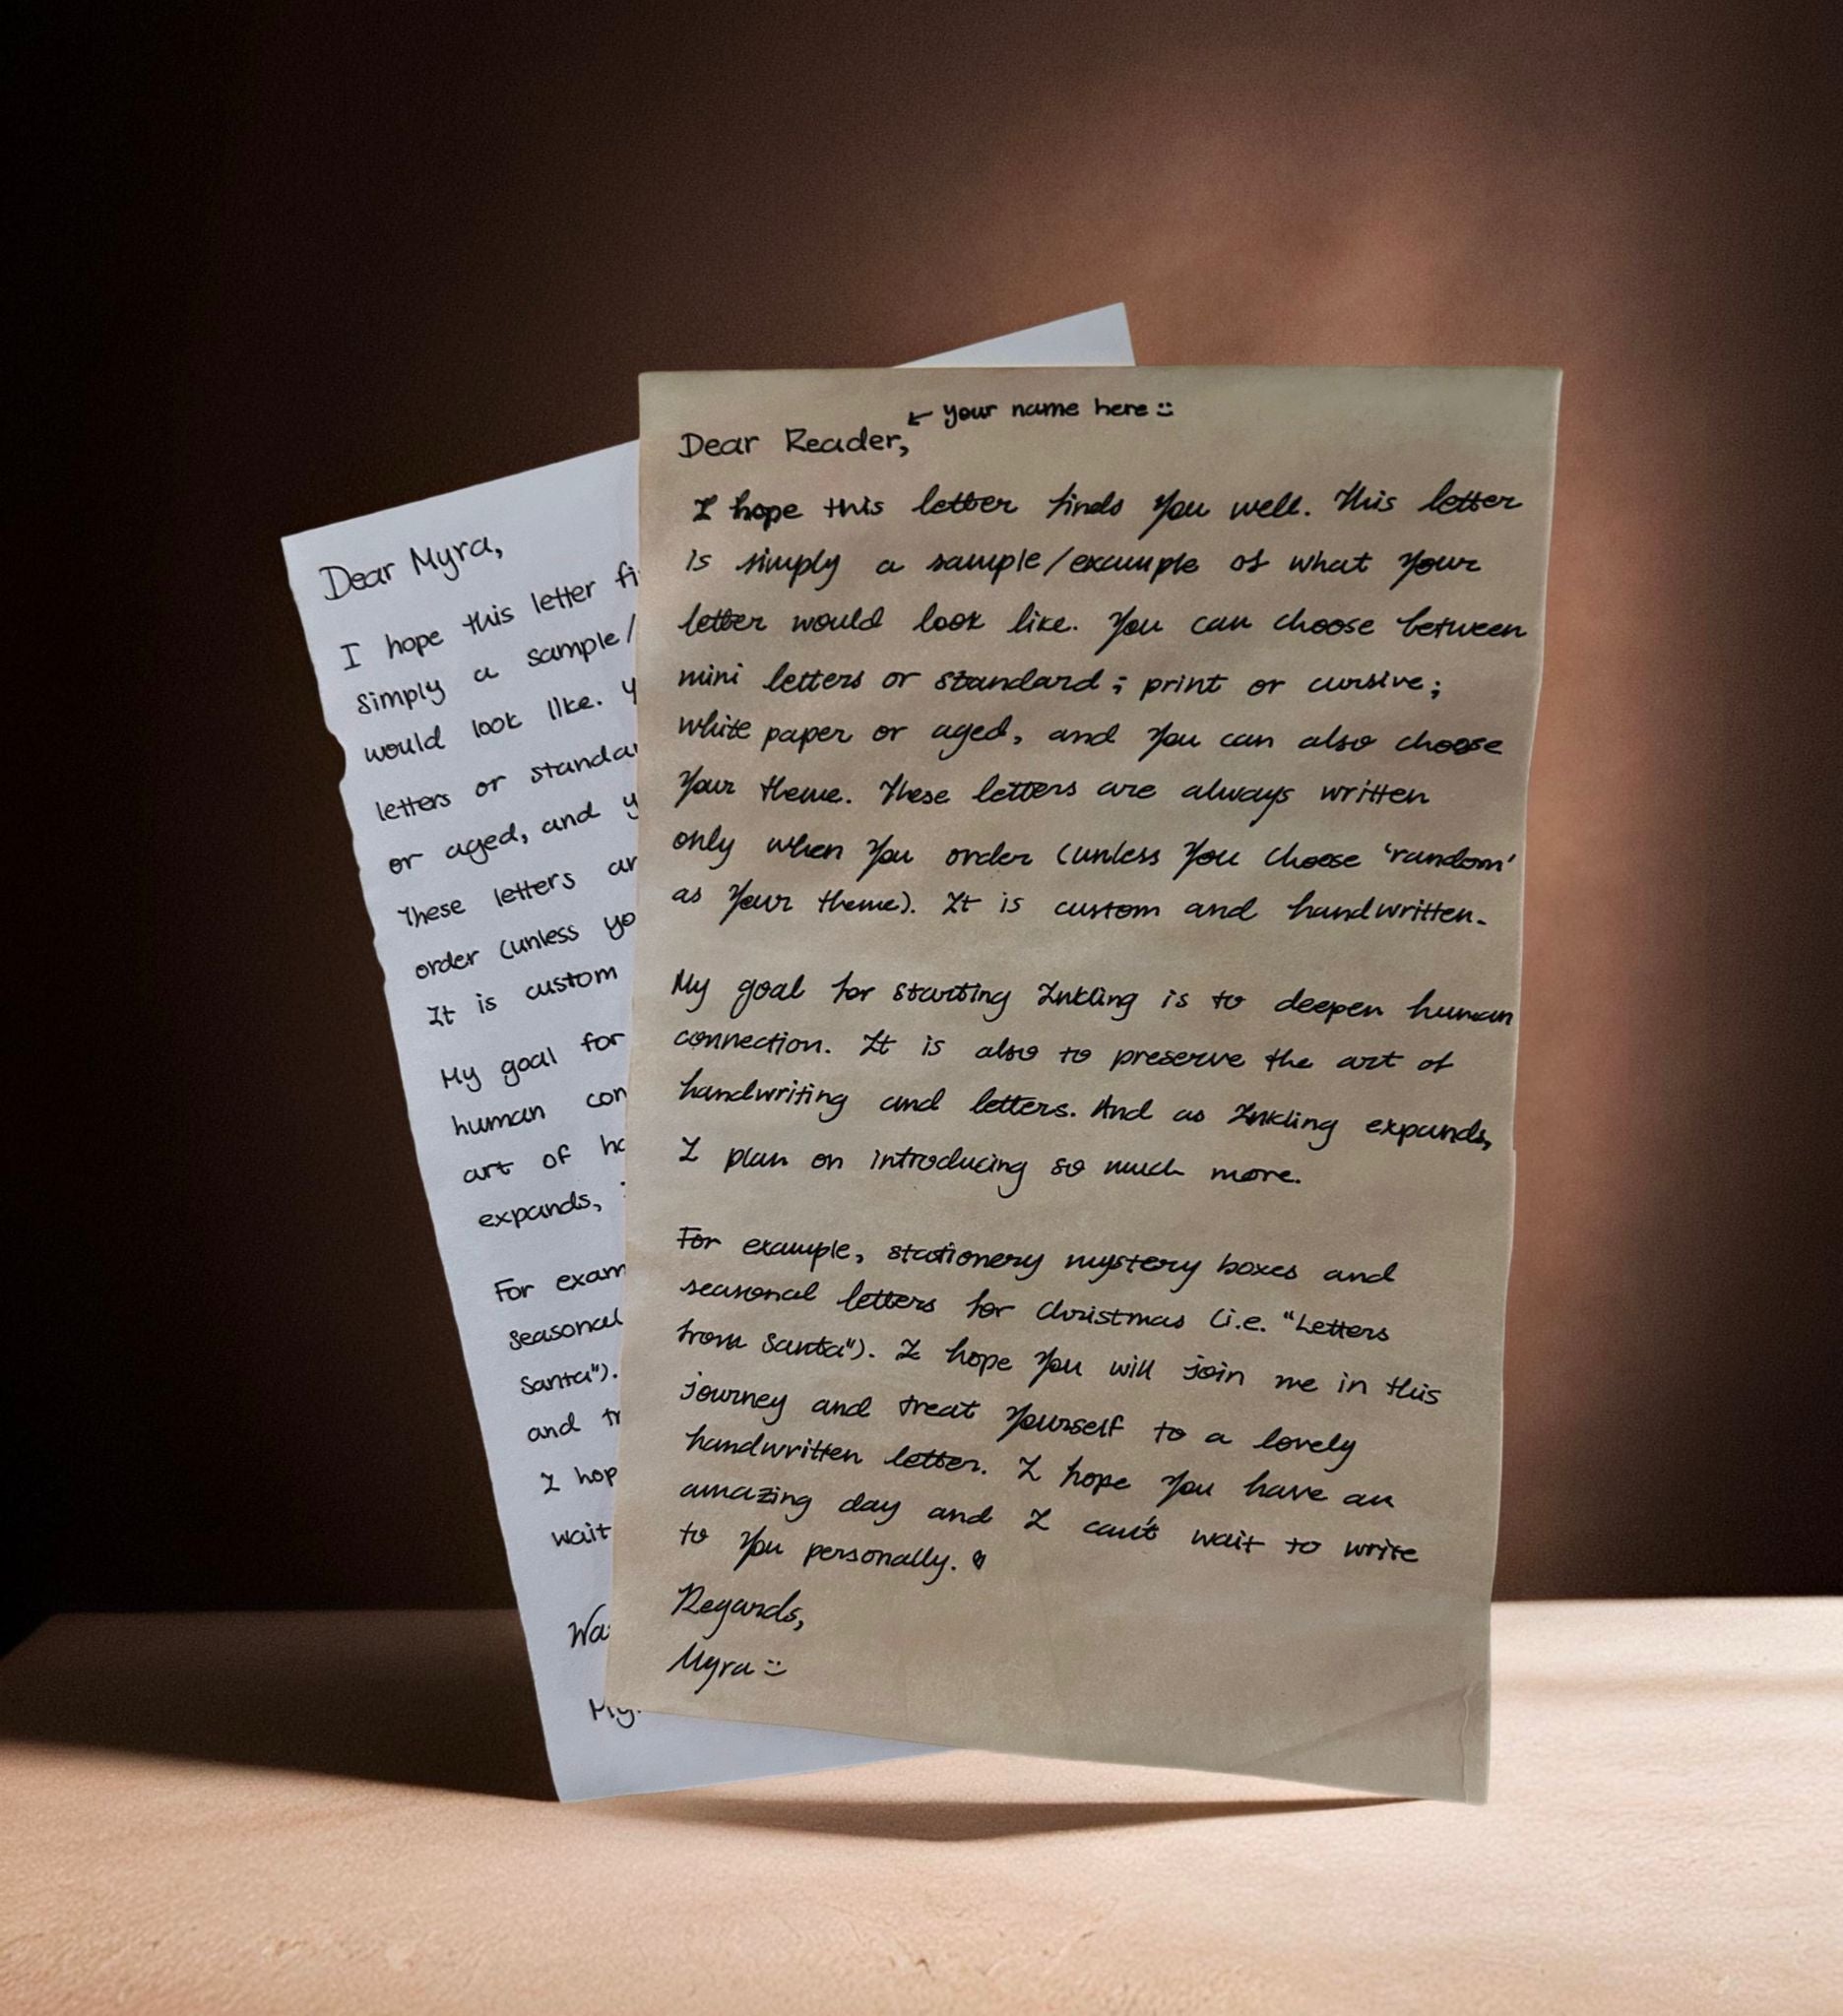 Dear Myra,
I hope this letter fi
simply a sample/
would look like. y
letters or standa
or aged, and y
These letters ar
order (unless yo
It is custom
My goal for
human con
art of ha
expands,
For exam
seasonal
Santa").
and tr
I hop
wait
Wa
My
← your name here :)
Dear Reader,
I hope this letter finds you well. This letter
is simply a sample/example of what your
letter would look like. You can choose between
mini letters or standard; print or cursive;
white paper or aged, and you can also choose
your theme. These letters are always written
only when you order (unless you choose 'random'
as your theme). It is custom and handwritten.
My goal for starting Inkling is to deepen human
connection. It is also to preserve the art of
handwriting and letters. And as Inkling expands,
I plan on introducing so much more.
For example, stationery mystery boxes and
seasonal letters for Christmas (i.e. "Letters
from Santa"). I hope you will join me in this
journey and treat yourself to a lovely
handwritten letter. I hope you have an
amazing day and I can't wait to write
to you personally.
Regards,
Myra :)